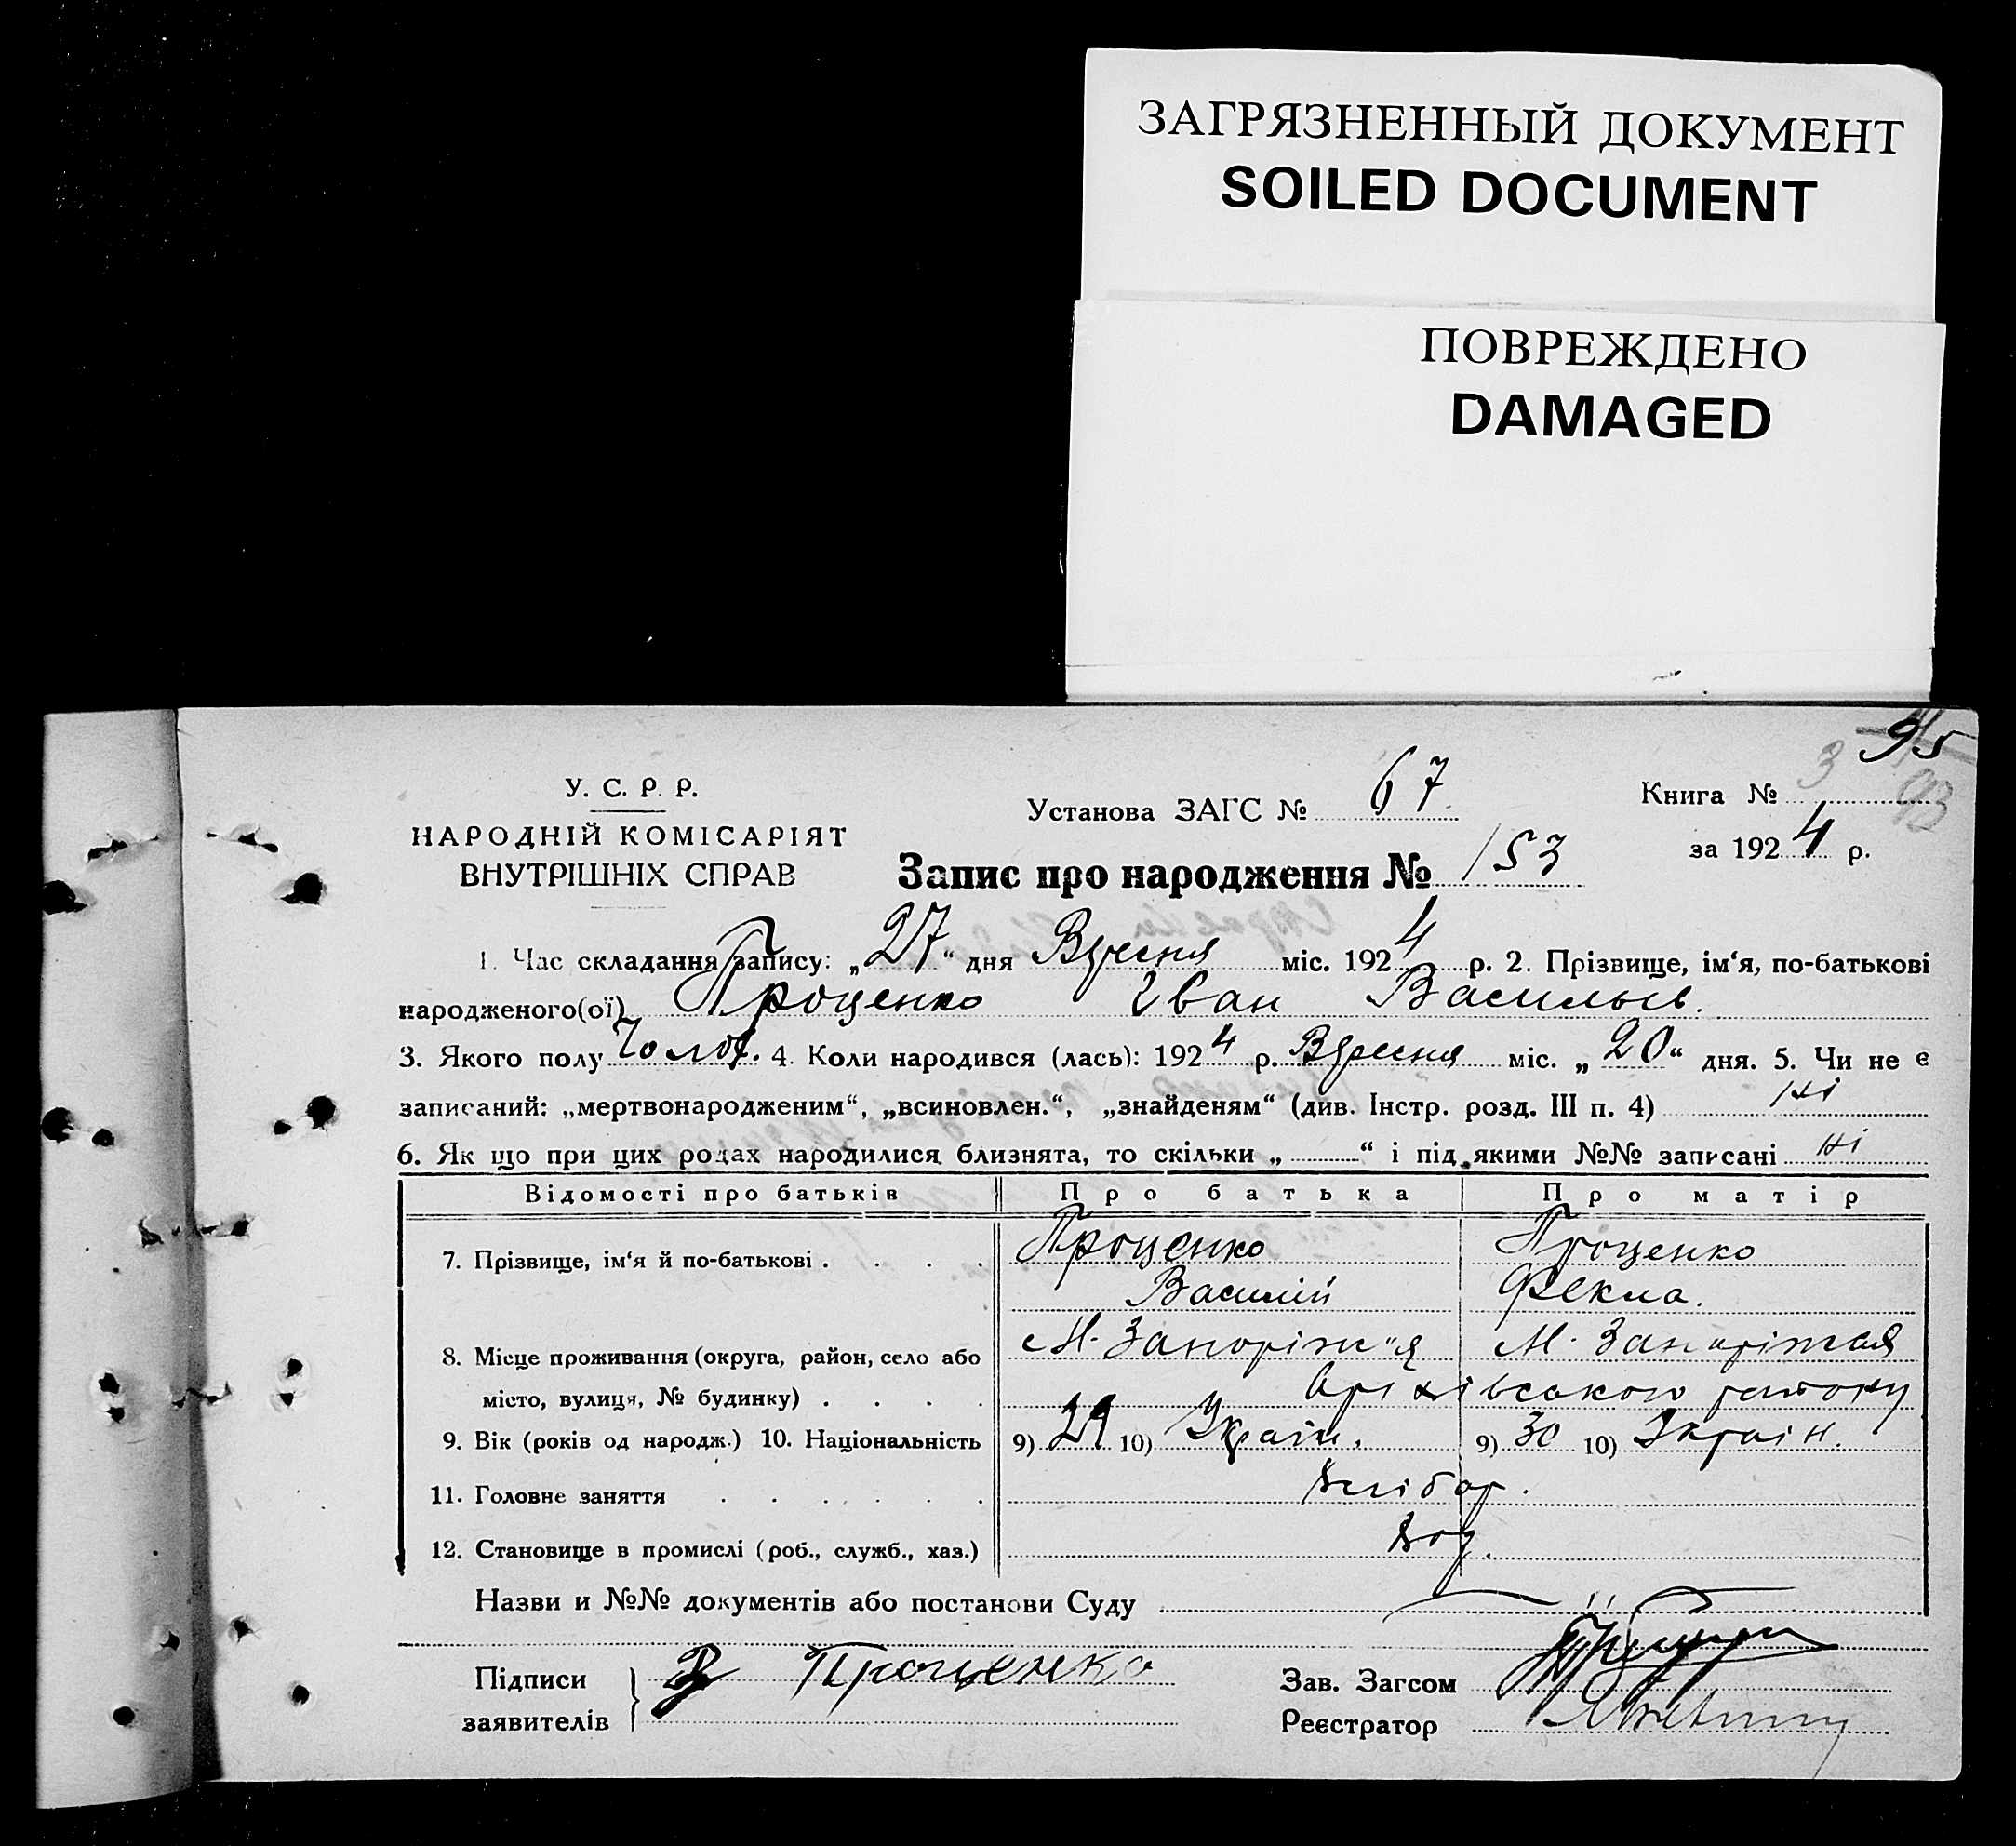 ЗАГРЯЗНЕННЫЙ ДОКУМЕНТ
SOILED DOCUMENT
ПОВРЕЖДЕНО
DAMAGED
95
93
У. С. Р. Р.
НАРОДНІЙ КОМІСАРІЯТ
ВНУТРІШНІХ СПРАВ
Установа ЗАГС № 67
Книга № 3
за 1924 р.
Запис про народження № 153
1. Час складання запису: „27“ дня Вересня міс. 1924 р. 2. Прізвище, ім‘я, по-батькові
народженого(ої) Проценко Іван Васильев.
3. Якого полу Чолов. 4. Коли народився (лась): 1924 р. Вересня міс. „20“ дня. 5. Чи не є
записаний: „мертвонародженим“, „всиновлен.“, „знайденям“ (див. Інстр. розд. III п. 4) ні
6. Як що при цих родах народилися близнята, то скільки „ “ і під якими №№ записані ні
Відомості про батьків Про батька Про матір
7. Прізвище, ім‘я й по-батькові . . . . Проценко Проценко
Василій Фекла.
8. Місце проживання (округа, район, село або М. Запоріжжя М. Запоріжжя
місто, вулиця, № будинку) . . . . Оріхівського району
9. Вік (років од народж.) 10. Національність 9) 29 10) Україн. 9) 30 10) Україн.
11. Головне заняття . . . . . . Хлібор.
12. Становище в промислі (роб., служб., хаз.) Хоз.
Назви и №№ документів або постанови Суду
Підписи В Проценко
заявителів
Зав. Загсом
Реєстратор